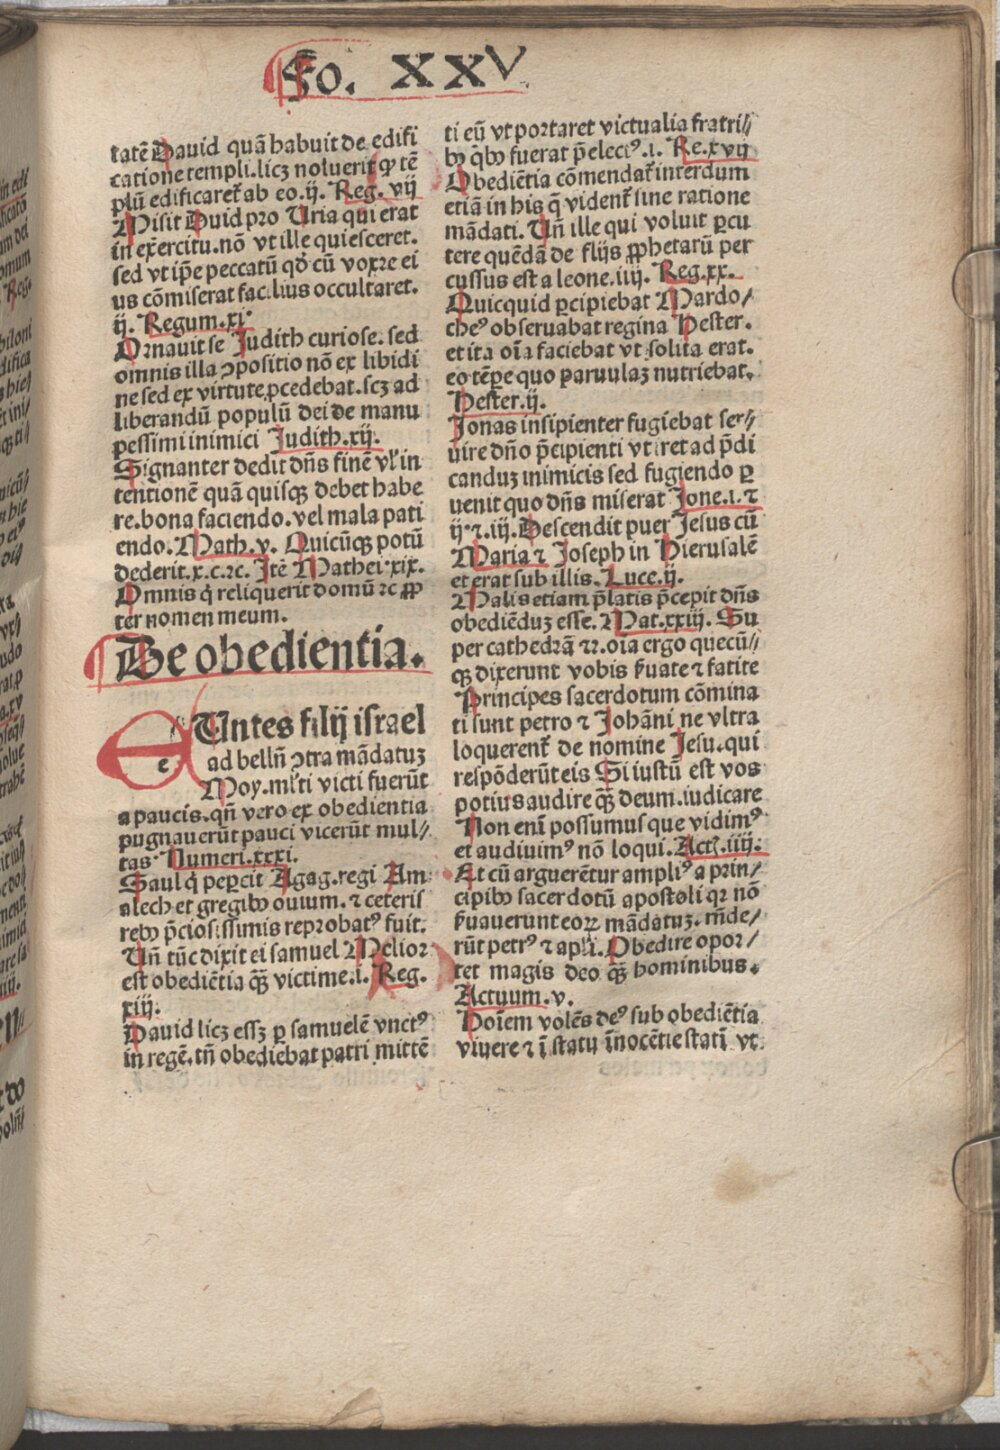 Fo. XXV
tatē Dauid quā habuit de edifi
catione templi.licꝫ noluerit ꝙ tē
plū edificaret᷑ ab eo.ij. Reg. vij
Misit Duid pro Uria qui erat
in exercitu.nō vt ille quiesceret.
sed vt ip̄e peccatū qđ cū voxre ei
us cōmiserat fac.lius occultaret.
ij. Regum.xi.
Ornauit se Judith curiose. sed
omnis illa ꝯpositio nō ex libidi
ne sed ex virtute ꝓcedebat.scꝫ ad
liberandū populū dei de manu
pessimi inimici Judith.xij.
Signanter dedit dn̄s finē vl᷑ in
tentionē quā quisqꝫ debet habe
re.bona faciendo.vel mala pati
endo.Math.v. Quicūqꝫ potū
dederit.x.c.⁊c. Itē Mathei.xix.
Omnis q̇ reliquerit domū ⁊c ꝓp
ter nomen meum.
De obedientia.
e
EUntes filij israel
ad bellū ꝯtra mādatuꝫ
Moy.ml᷑ti victi fuerūt
a paucis.qn̄ vero ex obedientia
pugnauerūt pauci vicerūt mul⸗
tas Numeri.xxxi.
Saul q̇ peꝑcit Agag.regi Am
alech et gregibꝰ ouium. ⁊ ceteris
rebꝰ p̄ciosissimis reprobatꝰ fuit.
Un̄ tūc dixit ei samuel Melior
est obediētia qꝫ̄ victime.i. Reg.
xiij.
Dauid licꝫ essꝫ ꝑ samuelē vnctꝰ
in regē.tn̄ obediebat patri mittē
ti eū vt portaret victualia fratri⸗
bꝰ q̇bꝰ fuerat p̄elecꝰ.i. Re.xvij
Obediētia cōmendat᷑ interdum
etiā in his q̄ vident᷑ sine ratione
mādati. Un̄ ille qui voluit ꝑcu
tere quēdā de filijs ꝓphetarū per
cussus est a leone.iij. Reg.xx.
Quicquid ꝑcipiebat Mardo⸗
cheꝰ obseruabat regina Hester.
et ita oīa faciebat vt solita erat.
eo tēꝑe quo paruulaꝫ nutriebat.
Hester.ij.
Jonas insipienter fugiebat ser⸗
uire dn̄o p̄cipienti vt iret ad p̄di
canduꝫ inimicis sed fugiendo ꝑ
uenit quo dn̄s miserat Jone.i.⁊
ij.⁊.iij. Descendit puer Jesus cū
Maria ⁊ Joseph in Hierusalē
et erat sub illis. Luce.ij.
Malis etiam p̄latis p̄cepit dn̄s
obediēduꝫ esse. Mat.xxiij. Su
per cathedrā ⁊c. oīa ergo quecū⸗
qꝫ dixerunt vobis ẜuate ⁊ fatite
Principes sacerdotum cōmina
ti sunt petro ⁊ Johāni ne vltra
loquerent᷑ de nomine Jesu.qui
respōderūt eis Si iustū est vos
potius audire qꝫ̄ deum.iudicare
Non enī possumus que vidimꝰ
et audiuimꝰ nō loqui. Act.iiij.
Et cū arguerētur ampliꝰ a prin⸗
cipibꝰ sacerdotū apostoli qr nō
ẜuauerunt eoꝝ mādatuꝫ. rn̄de⸗
rūt petrꝰ ⁊ apl᷑i. Obedire opor⸗
tet magis deo qꝫ̄ hominibus.
Actuum.v.
Hoīem volēs deꝰ sub obediētia
viuere ⁊ ī statu īnocētie statī vt